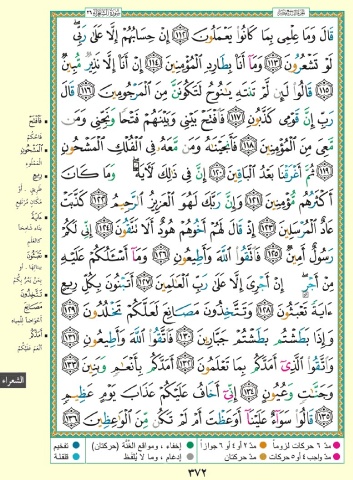 سورة الشعراء ٢٦
قَالَ وَمَا عِلْمِى بِمَا كَانُوا۟ يَعْمَلُونَ ١١٢ إِنْ حِسَابُهُمْ إِلَّا عَلَىٰ رَبِّى
لَوْ تَشْعُرُونَ ١١٣ وَمَآ أَنَا۠ بِطَارِدِ ٱلْمُؤْمِنِينَ ١١٤ إِنْ أَنَا۠ إِلَّا نَذِيرٌ مُّبِينٌ
١١٥ قَالُوا۟ لَئِن لَّمْ تَنتَهِ يَـٰنُوحُ لَتَكُونَنَّ مِنَ ٱلْمَرْجُومِينَ ١١٦ قَالَ
رَبِّ إِنَّ قَوْمِى كَذَّبُونِ ١١٧ فَٱفْتَحْ بَيْنِى وَبَيْنَهُمْ فَتْحًا وَنَجِّنِى وَمَن
مَّعِىَ مِنَ ٱلْمُؤْمِنِينَ ١١٨ فَأَنجَيْنَـٰهُ وَمَن مَّعَهُۥ فِى ٱلْفُلْكِ ٱلْمَشْحُونِ
١١٩ ثُمَّ أَغْرَقْنَا بَعْدُ ٱلْبَاقِينَ ١٢٠ إِنَّ فِى ذَٰلِكَ لَـَٔايَةً ۖ وَمَا كَانَ
أَكْثَرُهُم مُّؤْمِنِينَ ١٢١ وَإِنَّ رَبَّكَ لَهُوَ ٱلْعَزِيزُ ٱلرَّحِيمُ ١٢٢ كَذَّبَتْ
عَادٌ ٱلْمُرْسَلِينَ ١٢٣ إِذْ قَالَ لَهُمْ أَخُوهُمْ هُودٌ أَلَا تَتَّقُونَ ١٢٤ إِنِّى لَكُمْ
رَسُولٌ أَمِينٌ ١٢٥ فَٱتَّقُوا۟ ٱللَّهَ وَأَطِيعُونِ ١٢٦ وَمَآ أَسْـَٔلُكُمْ عَلَيْهِ
مِنْ أَجْرٍ ۖ إِنْ أَجْرِىَ إِلَّا عَلَىٰ رَبِّ ٱلْعَـٰلَمِينَ ١٢٧ أَتَبْنُونَ بِكُلِّ رِيعٍ
ءَايَةً تَعْبَثُونَ ١٢٨ وَتَتَّخِذُونَ مَصَانِعَ لَعَلَّكُمْ تَخْلُدُونَ ١٢٩
وَإِذَا بَطَشْتُم بَطَشْتُمْ جَبَّارِينَ ١٣٠ فَٱتَّقُوا۟ ٱللَّهَ وَأَطِيعُونِ ١٣١
وَٱتَّقُوا۟ ٱلَّذِىٓ أَمَدَّكُم بِمَا تَعْلَمُونَ ١٣٢ أَمَدَّكُم بِأَنْعَـٰمٍ وَبَنِينَ ١٣٣
وَجَنَّـٰتٍ وَعُيُونٍ ١٣٤ إِنِّىٓ أَخَافُ عَلَيْكُمْ عَذَابَ يَوْمٍ عَظِيمٍ
١٣٥ قَالُوا۟ سَوَآءٌ عَلَيْنَآ أَوَعَظْتَ أَمْ لَمْ تَكُن مِّنَ ٱلْوَٰعِظِينَ ١٣٦
فَٱفْتَحْ
فاحكم
ٱلْمَشْحُونِ
المملوء
رِيعٍ
طريق . أو
مكان مرتفع
ءَايَةً
بناء شامخاً
كالعلم
تَعْبَثُونَ
تَتَّخِذُونَ
مَصَانِعَ
أَمَدَّكُم
أنعم عليكم
الشعراء
مدّ ٦ حركات لزوماً مدّ ٢ أو ٤ أو ٦ جوازاً إخفاء، ومواقع الغُنَّة (حركتان) تفخيم
مدّ واجب ٤ أو ٥ حركات مدّ حركتان إدغام، وما لا يُلفظ قلقلة
٣٧٢